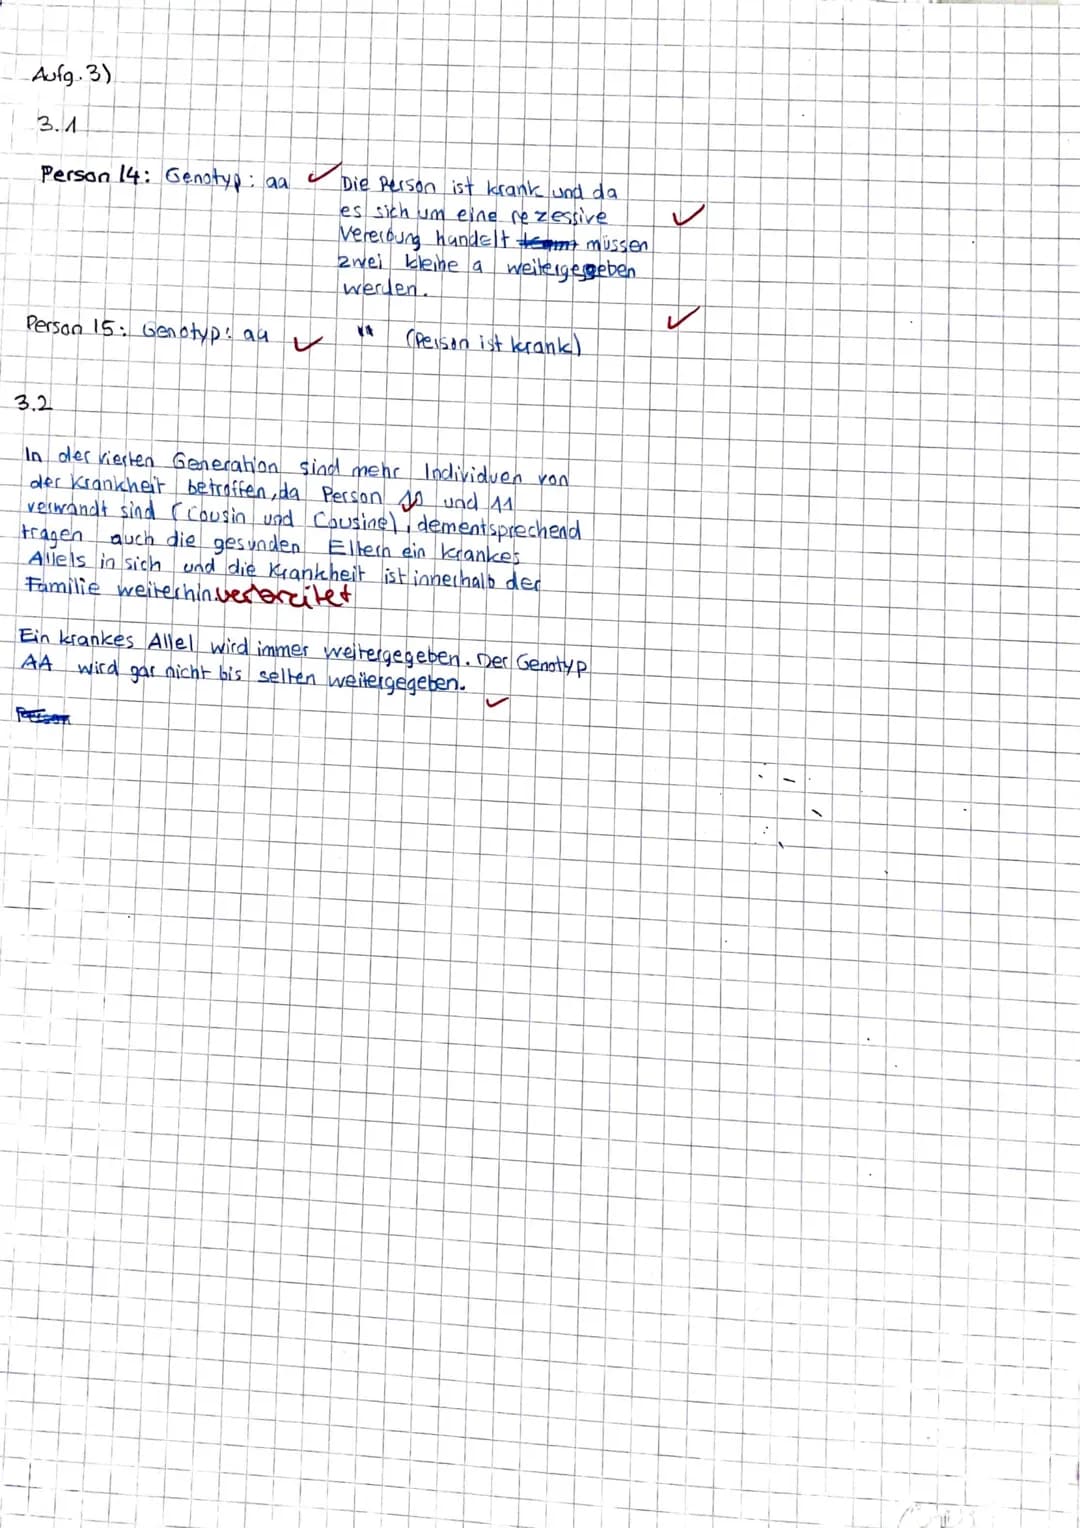 Aufg. 3)
3.1
Person 14: Genotyp: aa ✓ Die Person ist krank und da
es sich um eine rezessive ✓
Vererbung handelt müssen
zwei kleine a weitergegeben
werden.
Person 15: Genotyp: aa ✓ " (Person ist krank) ✓
3.2
In der vierten Generation sind mehr Individuen von
der Krankheit betroffen, da Person 10 und 11
verwandt sind (Cousin und Cousine), dementsprechend
tragen auch die gesunden Eltern ein krankes
Allels in sich und die Krankheit ist innerhalb der
Familie weiterhin verbreitet
Ein krankes Allel wird immer weitergegeben. Der Genotyp
AA wird gar nicht bis selten weitergegeben. ✓
Person